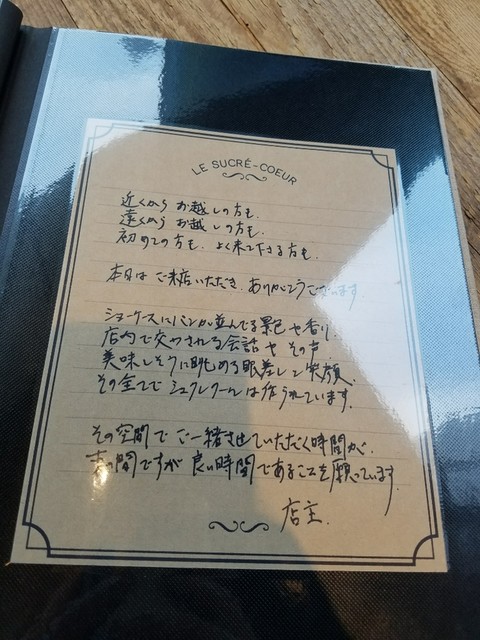 LE SUCRÉ-COEUR
近くから お越しの方も、
遠くから お越しの方も、
初めての方も、よく来て下さる方も、
本日は ご来店いただき、ありがとうございます。
ショーケースにパンが並んでる景色や香り、
店内で交わされる会話や その声、
美味しそうに眺める眼差しと笑顔、
その全てで シュクレクールは作られています。
その空間で ご一緒させていただく時間が、
間ですが 良い時間であることを願っています。
店主.